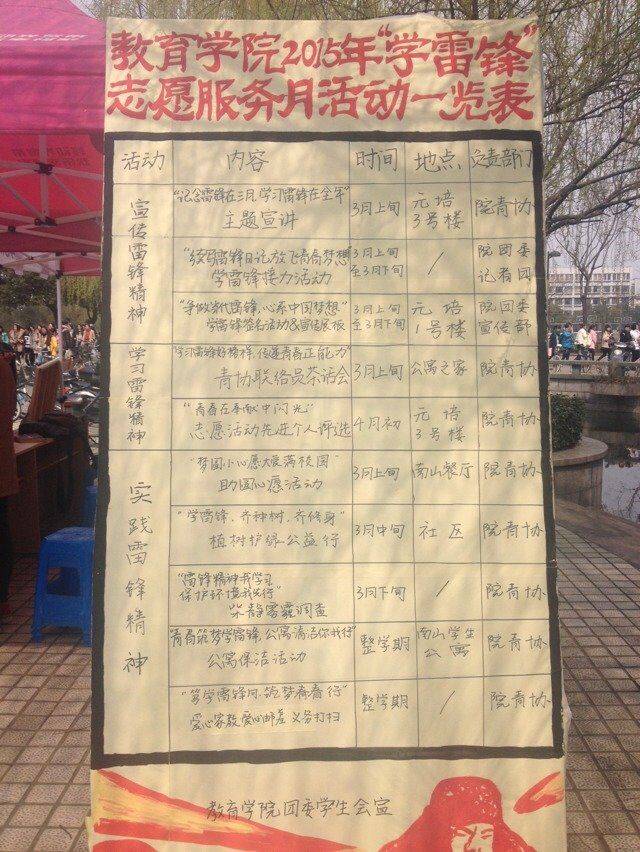 教育学院2015年“学雷锋”
志愿服务月活动一览表
活动 内容 时间 地点 负责部门
宣传雷锋精神
“纪念雷锋在三月,学习雷锋在全年”
主题宣讲
3月上旬
元培
3号楼
院青协
“续写雷锋日记放飞青春梦想”
学雷锋接力活动
3月上旬
至3月下旬
/
院团委
记者团
“争做时代雷锋,心系中国梦想”
学雷锋签名活动及宣传展板
3月上旬
至3月下旬
元培
1号楼
院团委
宣传部
学习雷锋精神
“学习雷锋好榜样,传递青春正能力”
青协联络员茶话会
3月上旬
公寓之家
院青协
“青春在奉献中闪光”
志愿活动先进个人评选
4月初
元培
3号楼
院青协
实践雷锋精神
“梦圆小心愿大爱满校园”
助圆心愿活动
3月上旬
南山餐厅
院青协
“学雷锋,齐种树,齐修身”
植树护绿公益行
3月中旬
社区
院青协
“雷锋精神我学习
保护环境我先行”
柴静雾霾调查
3月下旬
/
院青协
“青春筑梦学雷锋,公寓清洁你我行”
公寓保洁活动
整学期
南山学生
公寓
院青协
“争学雷锋风,筑梦青春行”
爱心家教爱心邮差义务打扫
整学期
/
院青协
教育学院团委学生会宣